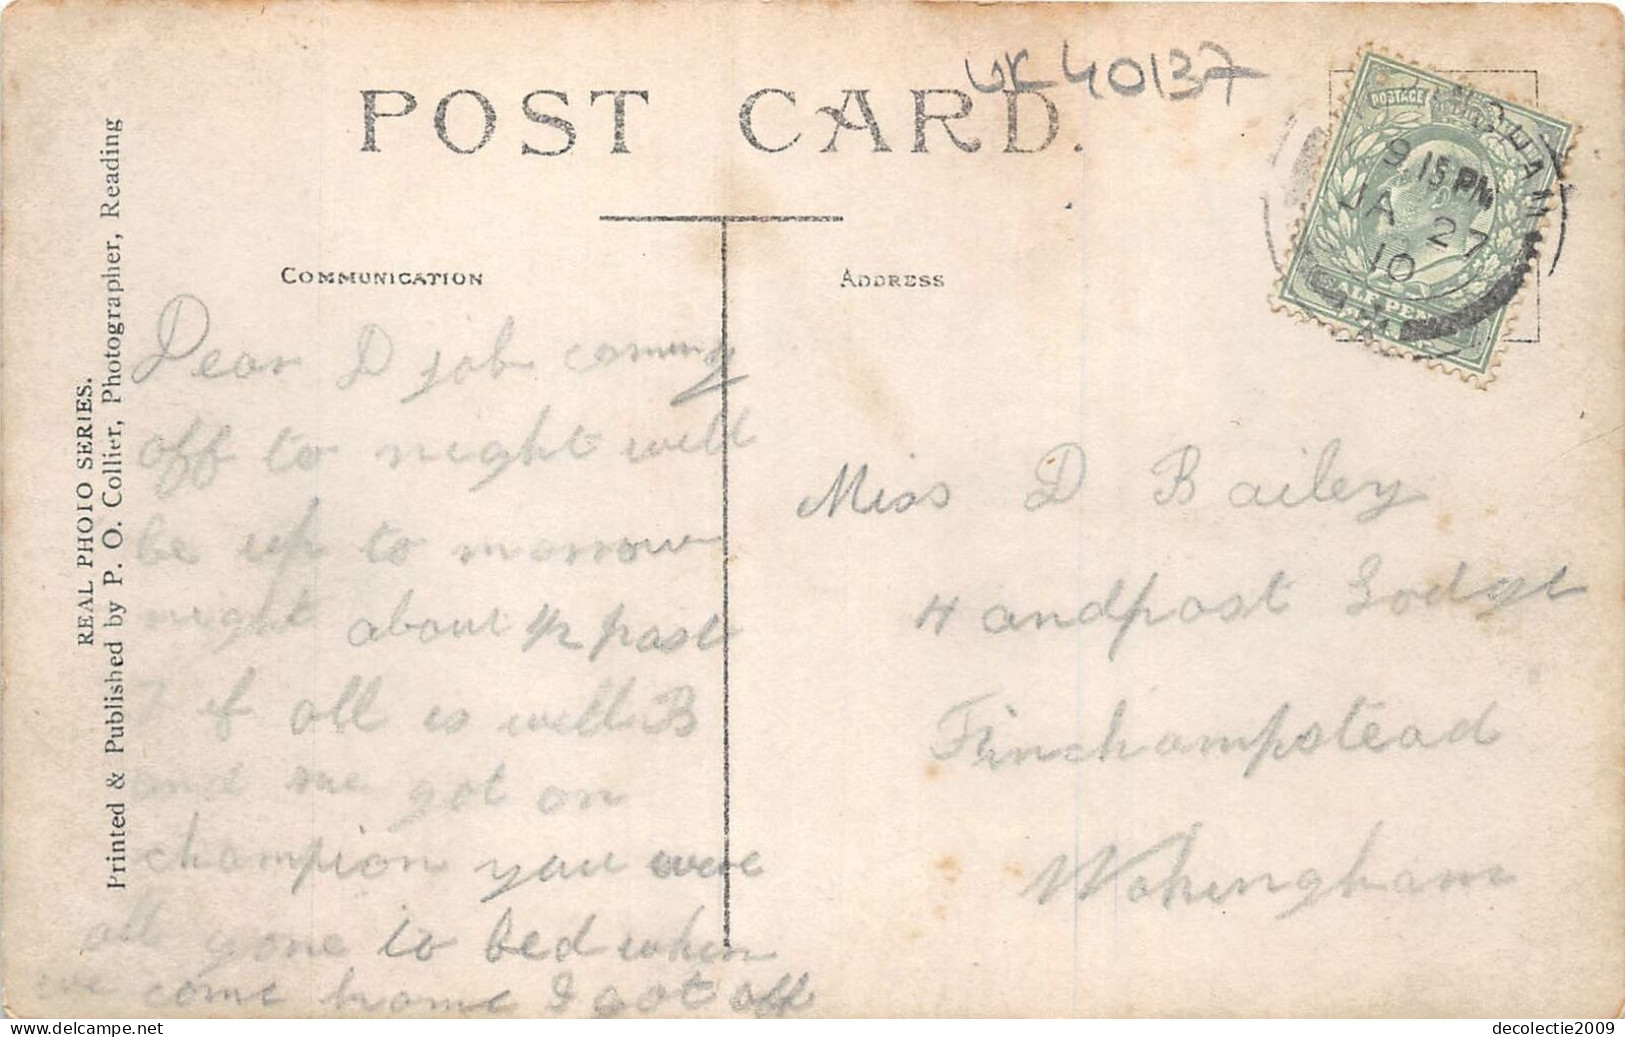 UK 40137
POST CARD.
REAL PHOTO SERIES.
Printed & Published by P. O. Collier, Photographer, Reading
COMMUNICATION
ADDRESS
POSTAGE
WOKINGHAM
9 15 PM
JA 27
10
Dear D job coming
off to night will
be up to morrow
night about 1/2 past
7 if all is well B
and me got on
champion you were
all gone to bed when
we come home I got off
Miss D Bailey
Handpost Lodge
Finchampstead
Wokingham
decolectie2009